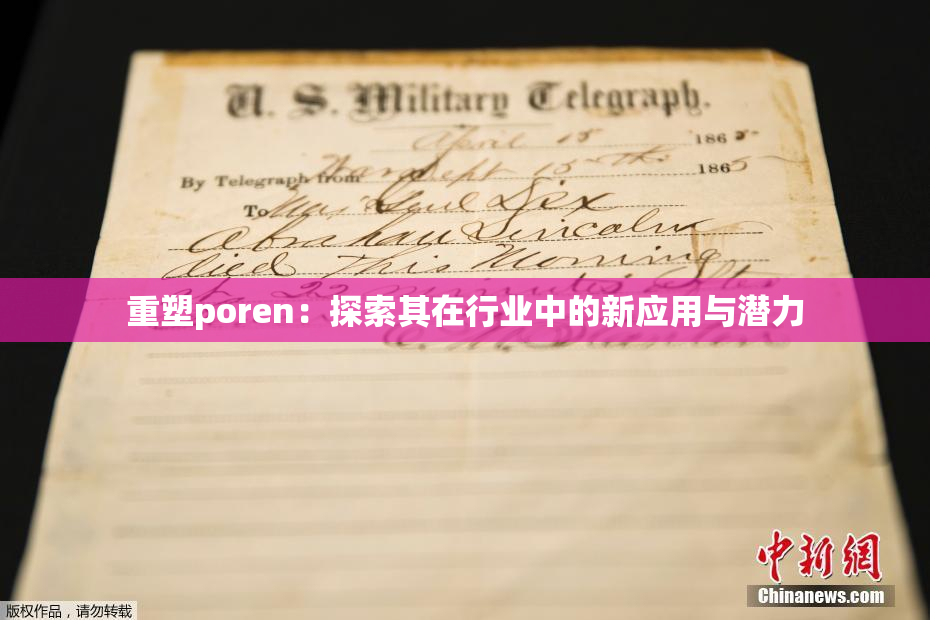 U. S. Military Telegraph.
April 15 1865
By Telegraph from War Dept 15th 1865
To Maj Genl Dix
Abraham Lincoln
died this Morning
at 22 minutes after
重塑poren：探索其在行业中的新应用与潜力
E. M. Stanton
中新网
Chinanews.com
版权作品，请勿转载